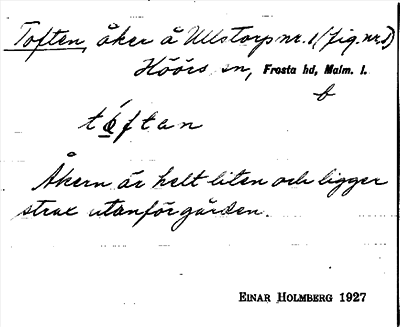 Toften, åker å Ullstorp nr. 1 (fig. nr. 8)
Höörs sn, Frosta hd, Malm. l.
b
tóftan
Åkern är helt liten och ligger
strax utanför gården.
EINAR HOLMBERG 1927